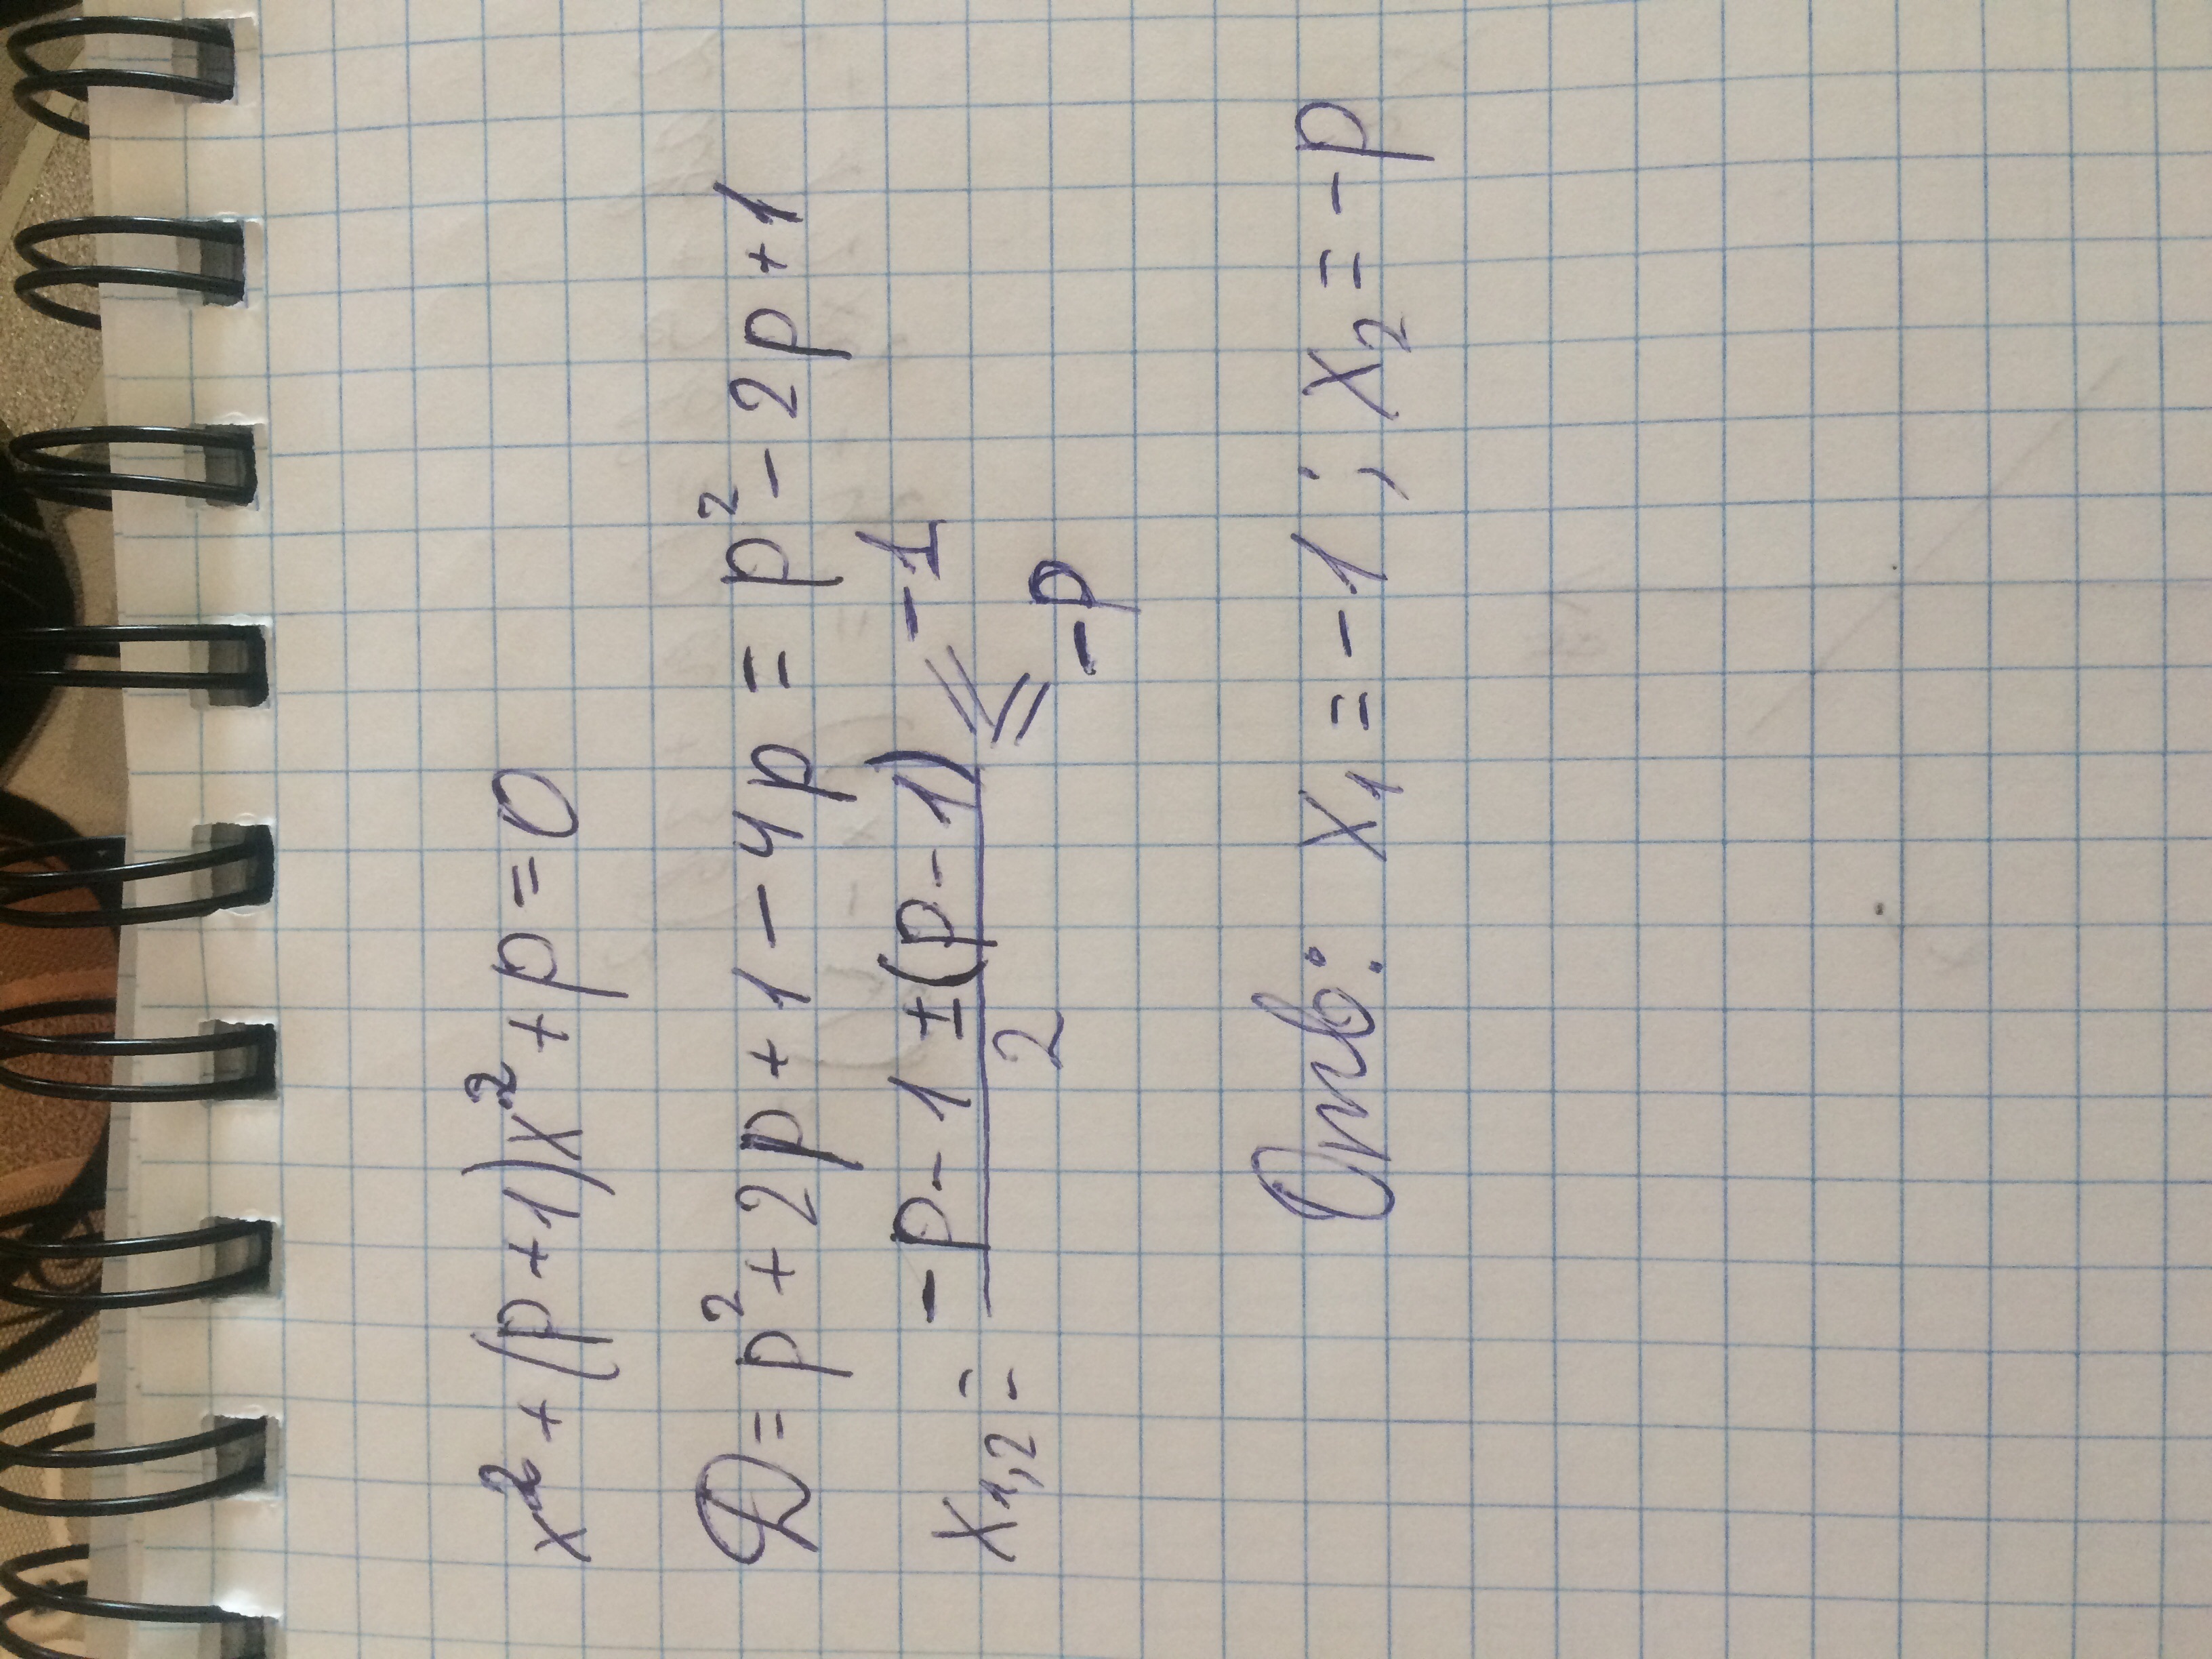 x² + (p+1)x² + p = 0
D = p² + 2p + 1 - 4p = p² - 2p + 1
x₁,₂ = (-p - 1 ± (p - 1))/2 = -1 = -p
Отв: x₁ = -1; x₂ = -p